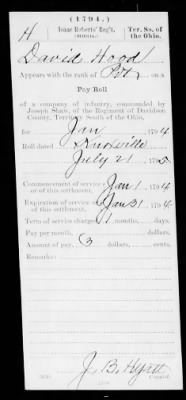 (1794.)
H
Isaac Roberts' Reg't,
Ter. So. of the Ohio.
David Hood
Appears with the rank of Pvt. on a
Pay Roll
of a company of infantry, commanded by
Joseph Shaw, of the Regiment of Davidson
County, Territory South of the Ohio,
for Jan , 1794
Roll dated Knoxville
July 21 , 1795
Commencement of service
of this settlement, Jan 1 , 1794
Expiration of service
of this settlement, Jan 31 , 1794
Term of service charged, 1 months, days.
Pay per month, dollars.
Amount of pay, 3 dollars, cents.
Remarks:
J. B. Hyatt
Copyist.